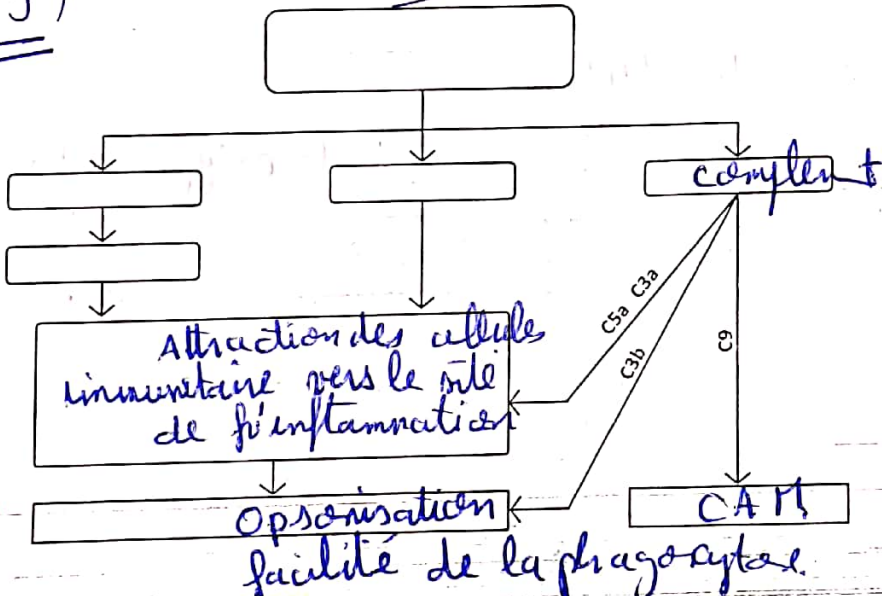 complent
C5a C3a
C3b
C9
Attraction des cellules
immunitaire vers le site
de l'inflammation
Opsonisation
CAM
facilité de la phagocytose.